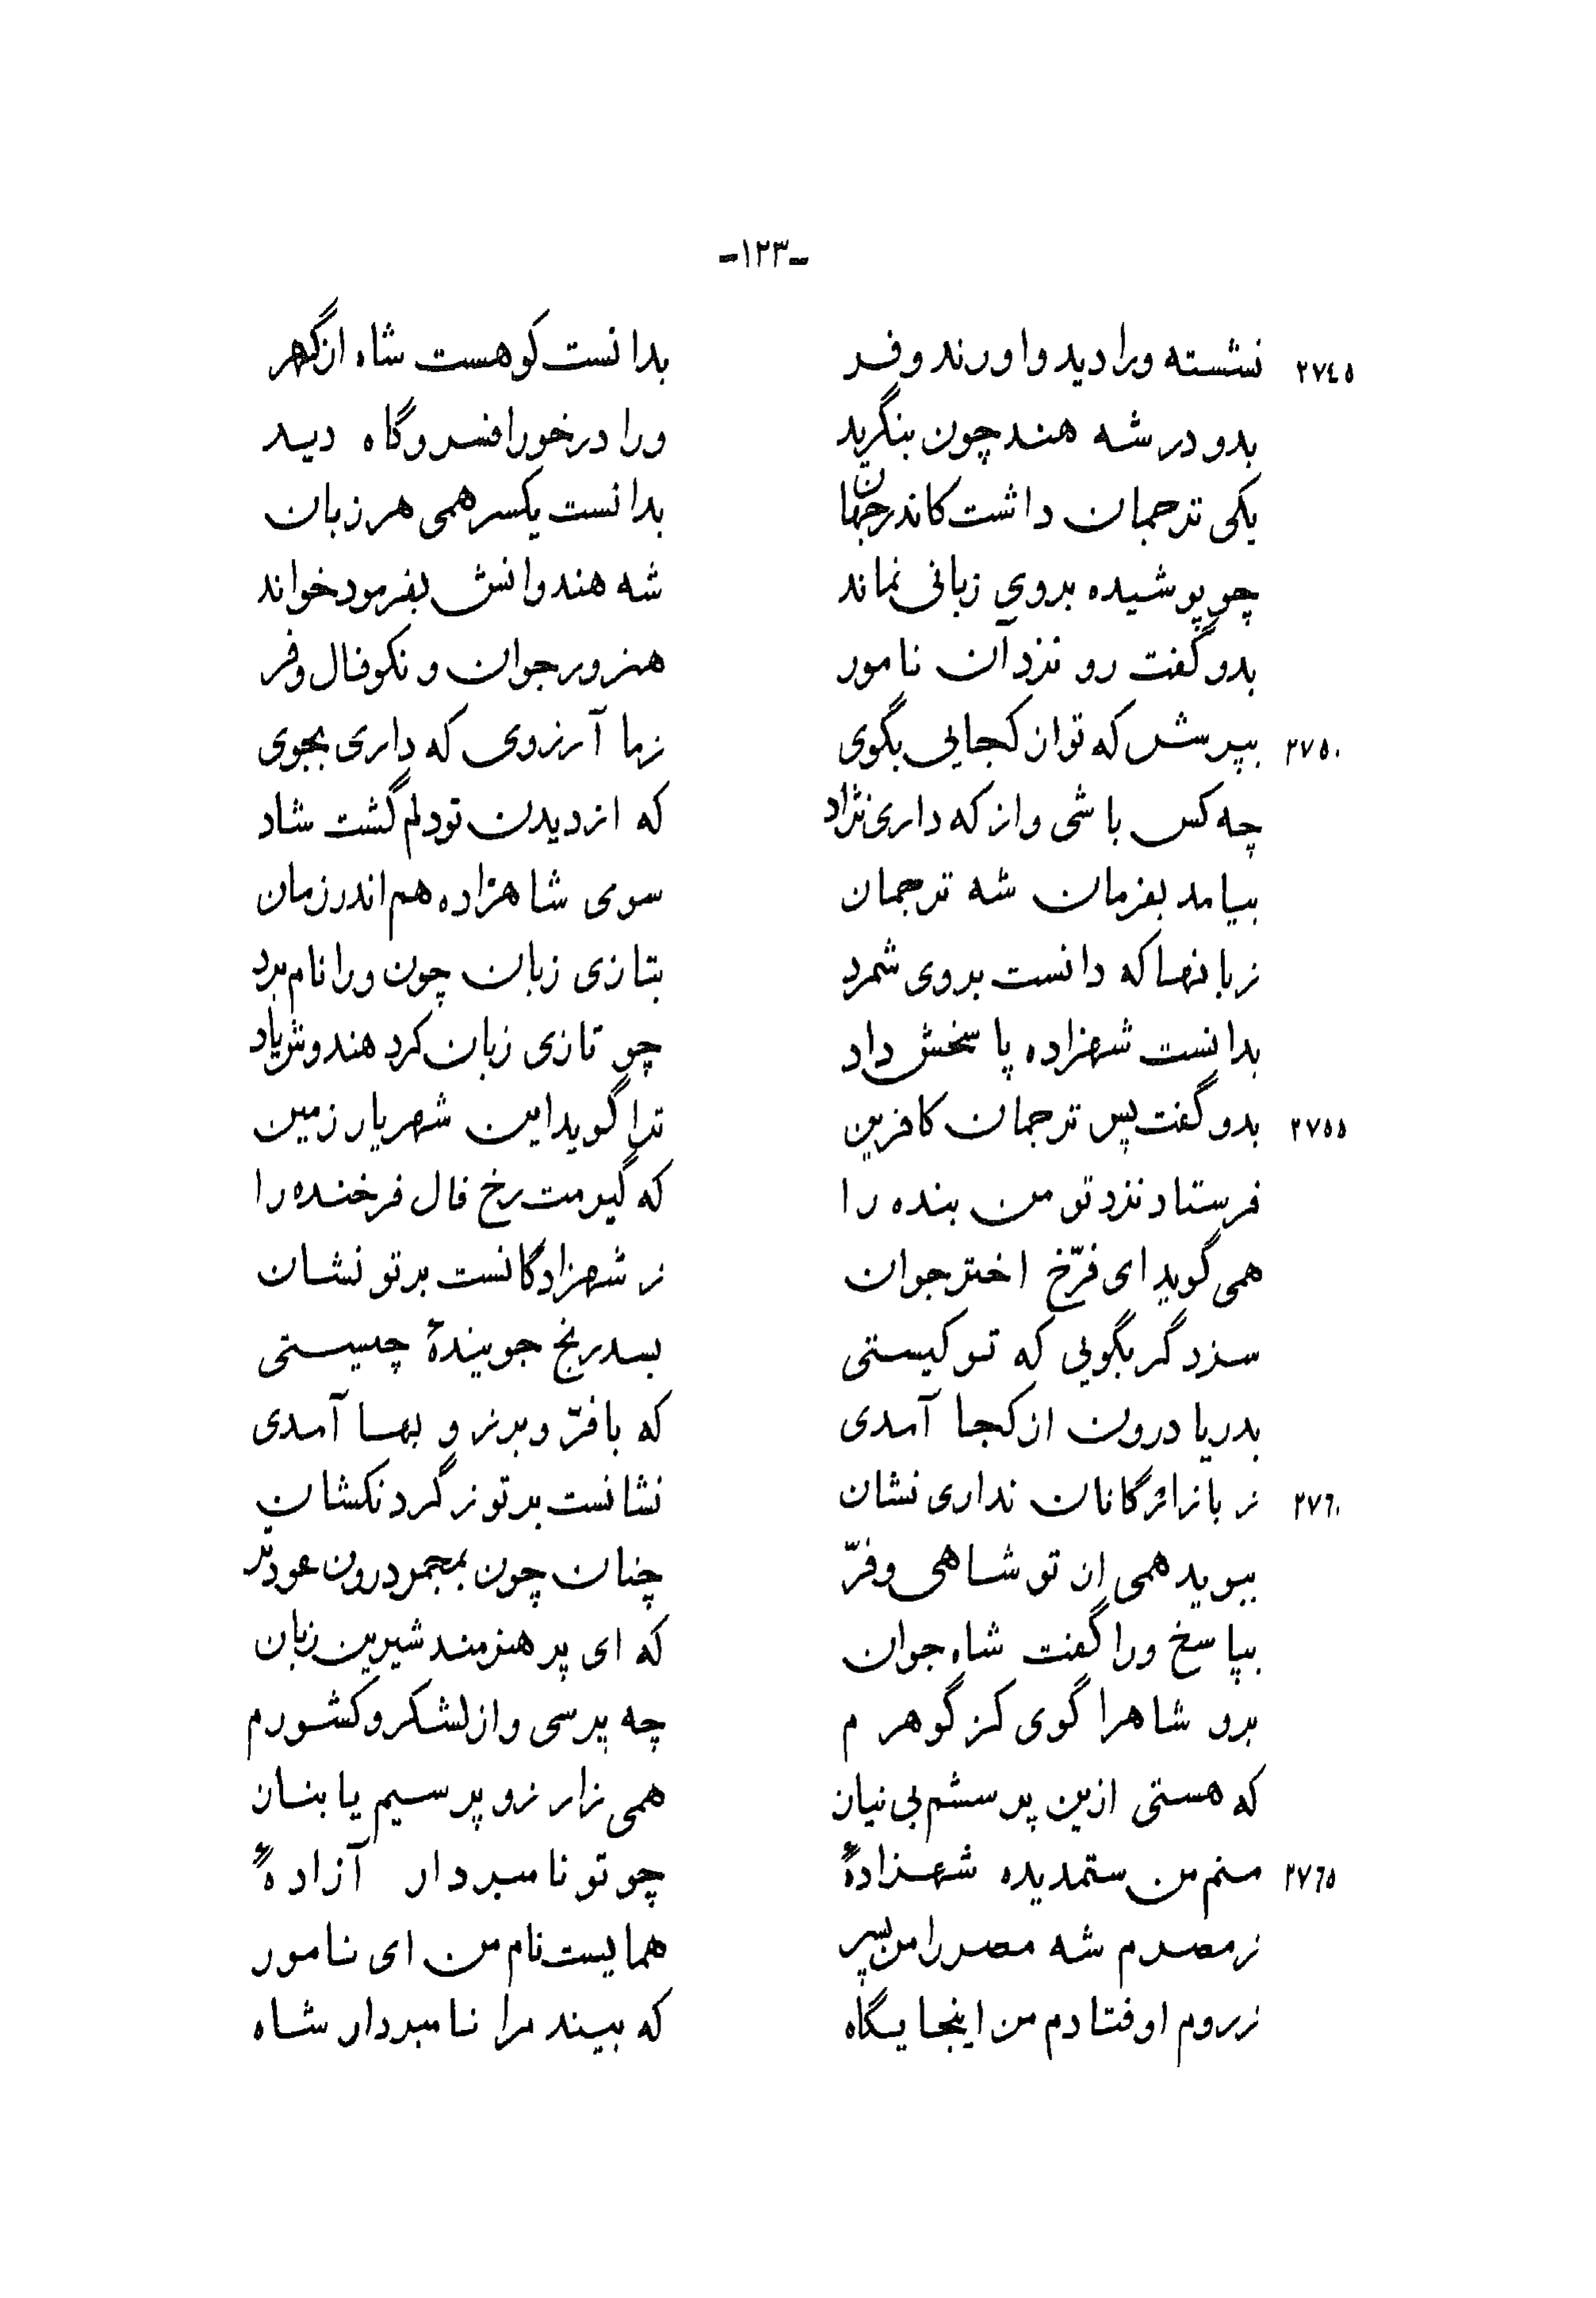 -۱۲۳-
۲۷٤٥ نشسته ورا دید و اورند و فر بدانست کو هست شاه از گهر
بدو در شه هند چون بنگرید ورا در خور افسر و گاه دید
یکی ترجمان داشت کاندر جهان بدانست یکسر همی هر زبان
چو پوشیده بروی زبانی نماند شه هندوانش بفرمود خواند
بدو گفت رو نزد آن نامور هنرور جوان و نکو فال و فر
۲۷٥۰ بپرسش که تو از کجایی بگوی زما آرزوی که داری بجوی
چه کس باشی و از که داری نژاد که از دیدن تو دلم گشت شاد
بیامد بفرمان شه ترجمان سوی شاهزاده هم اندر زمان
زبانها که دانست بروی شمرد بتازی زبان چون ورا نام برد
بدانست شهزاده پاسخش داد چو تازی زبان کرد هندوش یاد
۲۷٥٥ بدو گفت پس ترجمان کافرین ترا گوید این شهریار زمین
فرستاد نزد تو من بنده را که گیرمت رخ فال فرخنده را
همی گوید ای فرّخ اختر جوان ز شهزادگانست بر تو نشان
سزد گر بگویی که تو کیستی بسد رنج جویندهٔ چیستی
بدریا درون از کجا آمدی که با فرّ و برز و بها آمدی
۲۷٦۰ ز بازارگانان نداری نشان نشانست بر تو ز گردنکشان
ببوید همی از تو شاهی و فرّ چنان چون بمجمر درون عود تر
بپاسخ ورا گفت شاه جوان که ای پر هنرمند شیرین زبان
برو شاهرا گوی کز گوهرم چه پرسی و از لشکر و کشورم
که هستی ازین پرسشم بی نیاز همی زار زو پرسیم یا بناز
۲۷٦٥ منم من ستمدیده شهزادهٔ چو تو نامبردار آزادهٔ
ز مصرم شه مصر را من پسر همایست نام من ای نامور
ز روم اوفتادم من اینجایگاه که بیند مرا نامبردار شاه